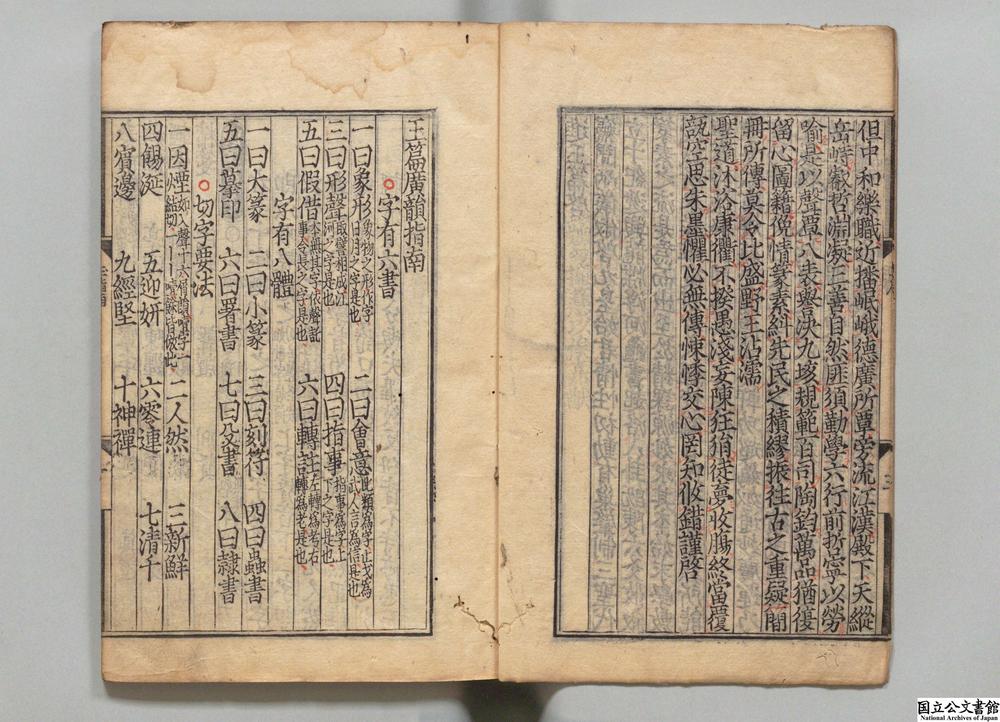 但中和樂職近播岷峨德廣所覃旁流江漢殿下天縱
岳峙叡哲淵凝三善自然匪須勤學六行前哲寧以勞
喻是以聲覃八表譽決九垓規範百司陶鈞萬品猶復
留心圖籍俛情篆素糾先民之積繆振往古之重疑簡
冊所傳莫令比盛野王沾濡
聖道沐浴康衢不揆愚淺妄陳狂狷徒夢收腸終當覆
瓿空思朱墨懼必無傳悚悸交心罔知攸錯謹啓
玉篇廣韻指南
○字有六書
一曰象形象物之形作字日月之字是也 二曰會意比類為字止戈為武人言為信是也
三曰形聲取譬相成江河之字是也 四曰指事指事為字上下之字是也
五曰假借本無其字依聲託事令長之字是也 六曰轉注左轉為考右轉為老是也
字有八體
一曰大篆 二曰小篆 三曰刻符 四曰蟲書
五曰摹印 六曰署書 七曰殳書 八曰隸書
○切字要法
一因煙 二人然 三新鮮
四餳涎 五迎妍 六零連 七清千
八賓邊 九經堅 十神禪
国立公文書館
National Archives of Japan